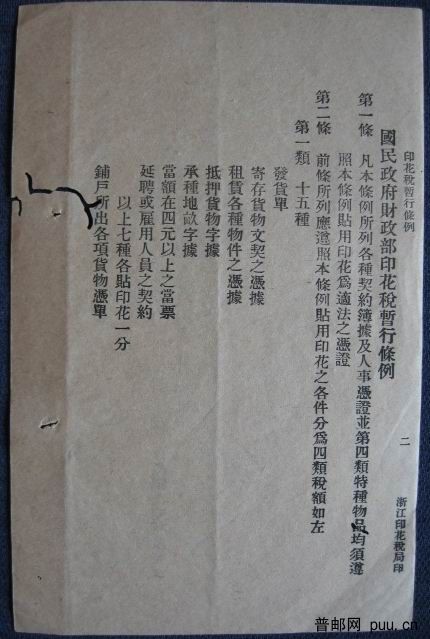 印花稅暫行條例
二
浙江印花稅局印
國民政府財政部印花稅暫行條例
第一條 凡本條例所列各種契約簿據及人事憑證並第四類特種物品均須遵
照本條例貼用印花爲適法之憑證
第二條 前條所列應遵照本條例貼用印花之各件分爲四類稅額如左
第一類 十五種
發貨單
寄存貨物文契之憑據
租賃各種物件之憑據
抵押貨物字據
承種地畝字據
當額在四元以上之當票
延聘或雇用人員之契約
以上七種各貼印花一分
鋪戶所出各項貨物憑單
普邮网 puu.cn